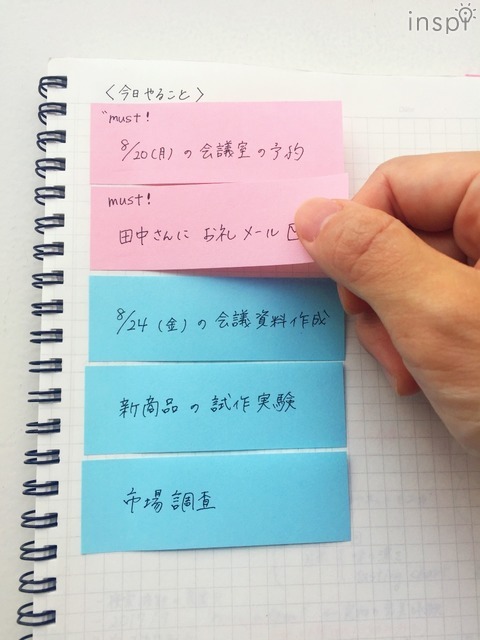 inspi
〈今日やること〉
must!
8/20(月)の会議室の予約
must!
田中さんに お礼メール
8/24(金)の会議資料作成
新商品の試作実験
市場調査